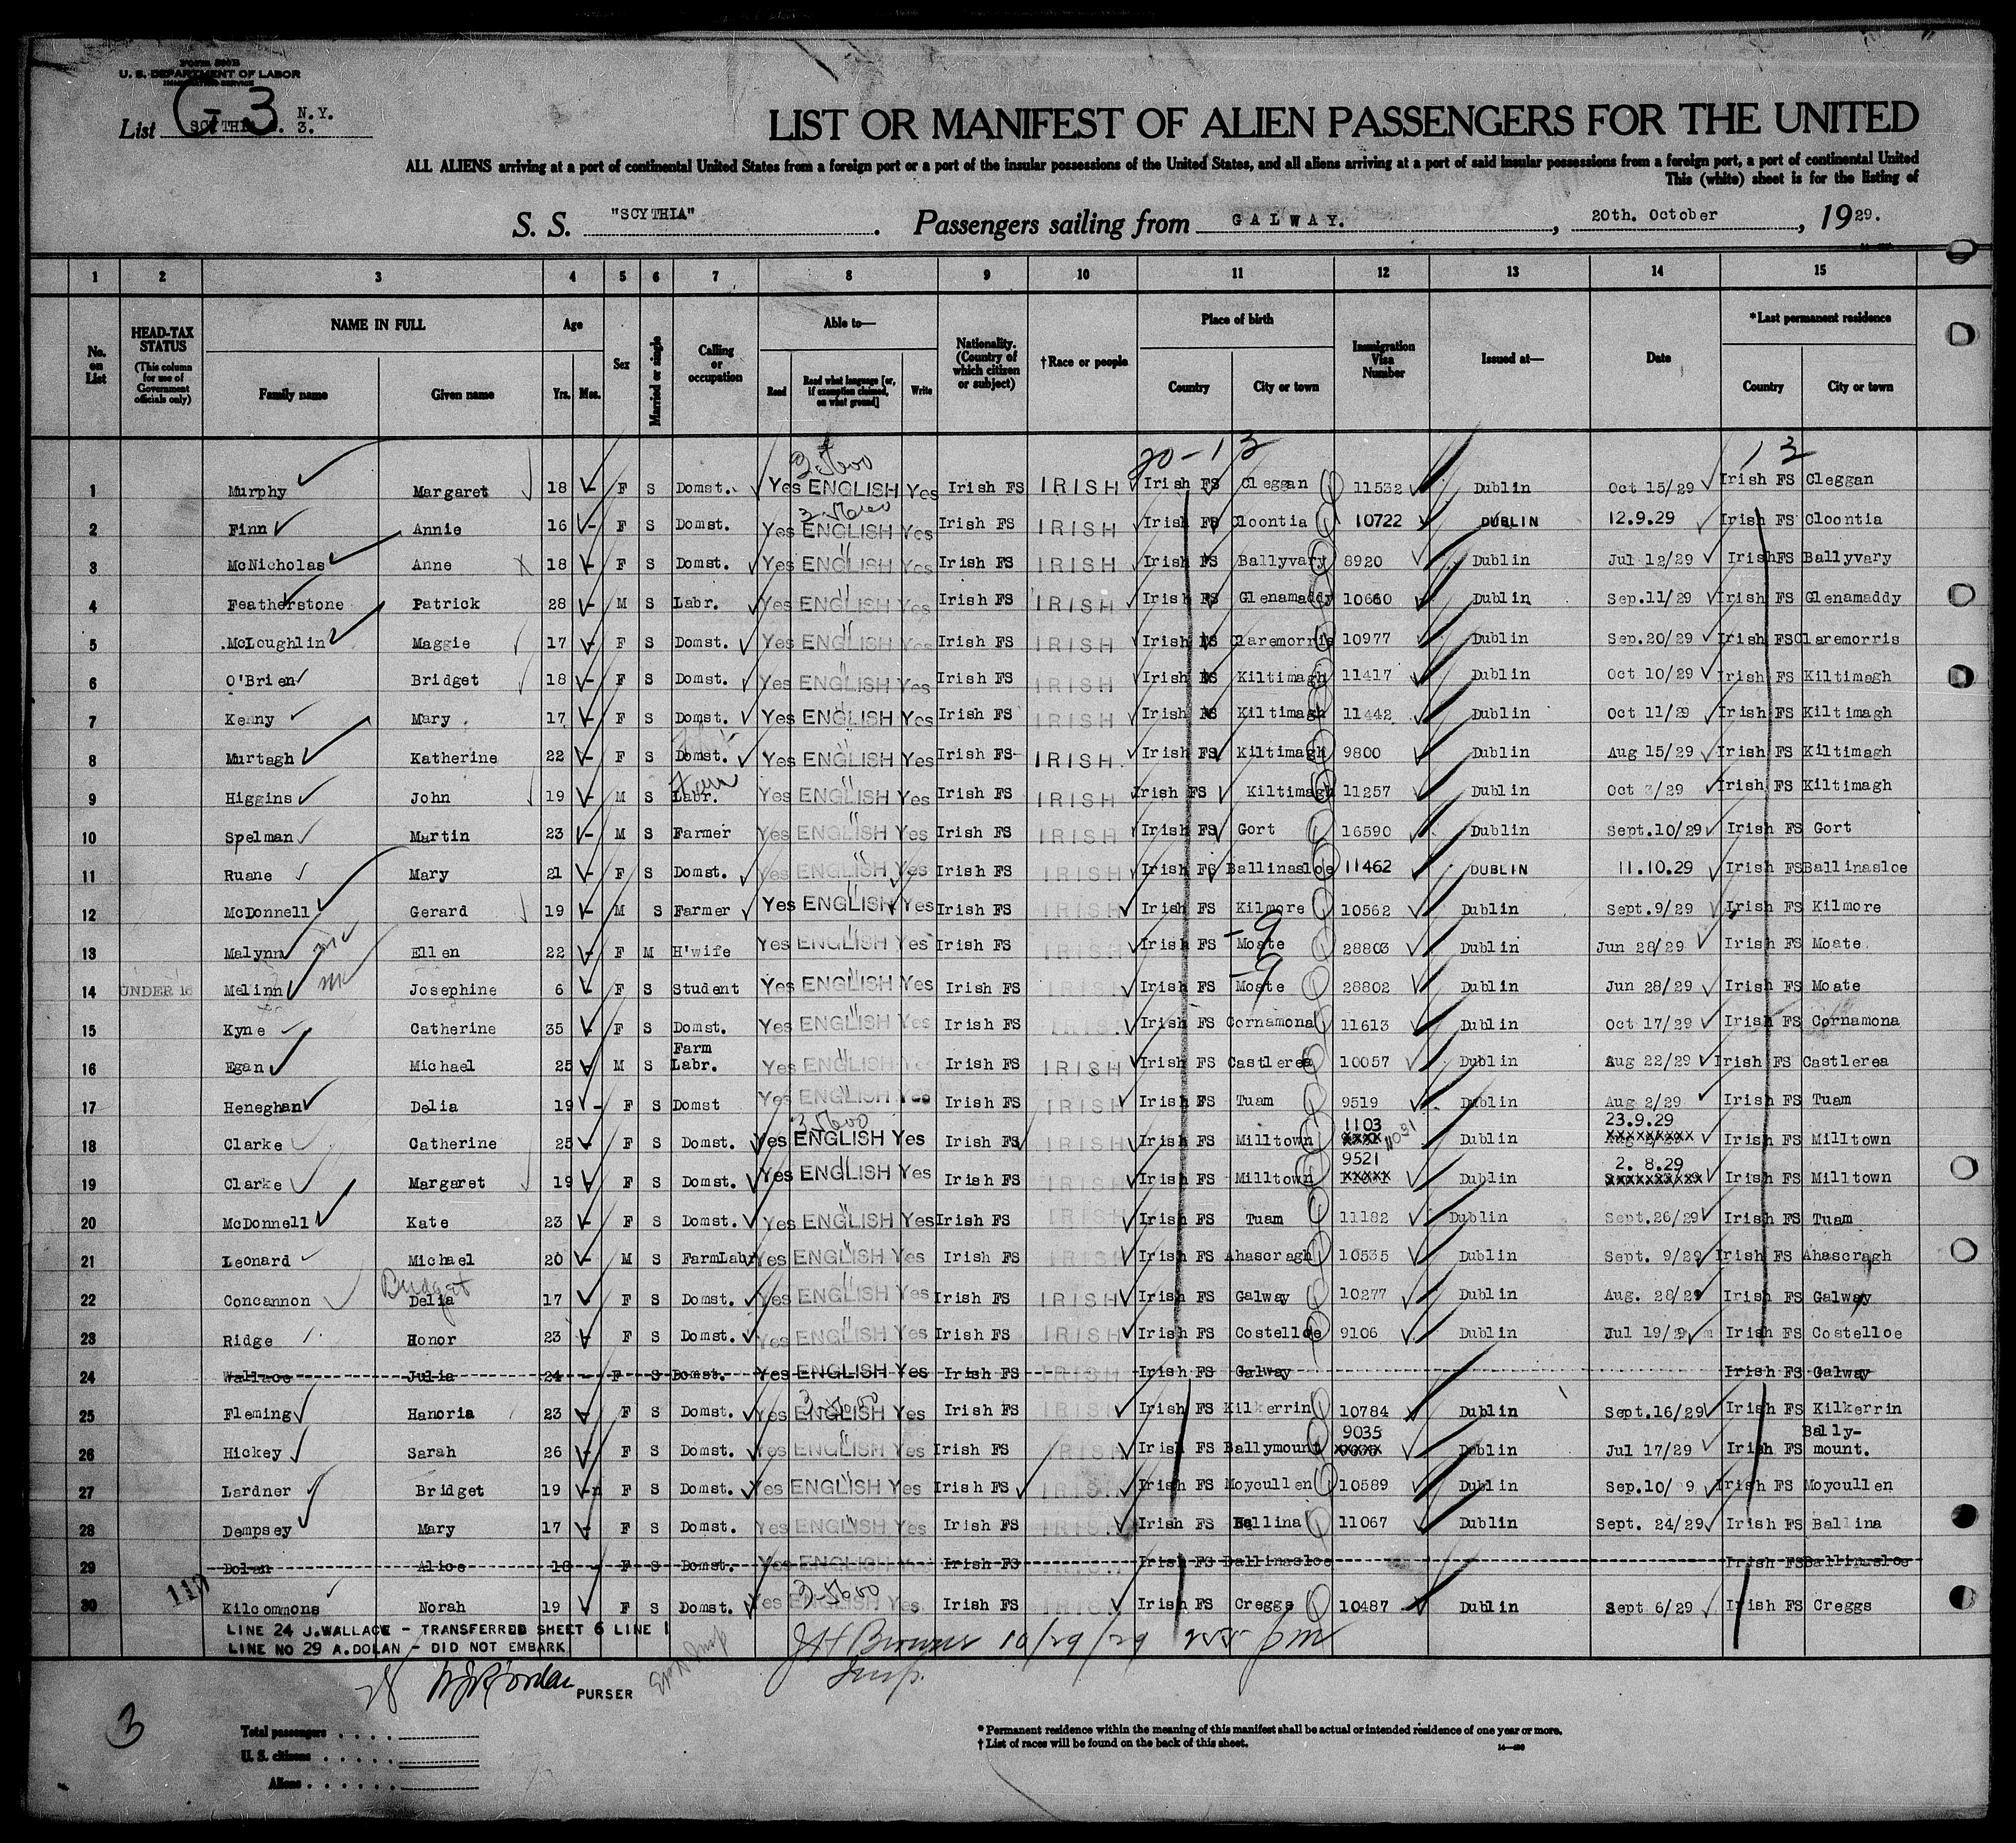 Form 500B
U. S. DEPARTMENT OF LABOR
IMMIGRATION SERVICE
G-3
List SCYTHIA N.Y. 3.
LIST OR MANIFEST OF ALIEN PASSENGERS FOR THE UNITED
ALL ALIENS arriving at a port of continental United States from a foreign port or a port of the insular possessions of the United States, and all aliens arriving at a port of said insular possessions from a foreign port, a port of continental United
This (white) sheet is for the listing of
S. S. "SCYTHIA" . Passengers sailing from GALWAY. , 20th. October , 1929.
1 2 3 4 5 6 7 8 9 10 11 12 13 14 15
No. on List
HEAD-TAX STATUS
(This column for use of Government officials only)
NAME IN FULL
Family name Given name
Age
Yrs. Mos.
Sex
Married or single
Calling or occupation
Able to—
Read Read what language [or, if exemption claimed, on what ground] Write
Nationality. (Country of which citizen or subject)
†Race or people
Place of birth
Country City or town
Immigration Visa Number
Issued at—
Date
*Last permanent residence
Country City or town
20-13 13
1 Murphy Margaret 18 F S Domst. Yes ENGLISH Yes Irish FS IRISH Irish FS Cleggan 11532 Dublin Oct 15/29 Irish FS Cleggan
2 Finn Annie 16 F S Domst. Yes ENGLISH Yes Irish FS IRISH Irish FS Cloontia 10722 DUBLIN 12.9.29 Irish FS Cloontia
3 McNicholas Anne 18 F S Domst. Yes ENGLISH Yes Irish FS IRISH Irish FS Ballyvary 8920 Dublin Jul 12/29 IrishFS Ballyvary
4 Featherstone Patrick 28 M S Labr. Yes ENGLISH Yes Irish FS IRISH Irish FS Glenamaddy 10660 Dublin Sep.11/29 Irish FS Glenamaddy
5 McLoughlin Maggie 17 F S Domst. Yes ENGLISH Yes Irish FS IRISH Irish FS Claremorris 10977 Dublin Sep.20/29 Irish FS Claremorris
6 O'Brien Bridget 18 F S Domst. Yes ENGLISH Yes Irish FS IRISH Irish FS Kiltimagh 11417 Dublin Oct 10/29 Irish FS Kiltimagh
7 Kenny Mary 17 F S Domst. Yes ENGLISH Yes Irish FS IRISH Irish FS Kiltimagh 11442 Dublin Oct 11/29 Irish FS Kiltimagh
8 Murtagh Katherine 22 F S Domst. Yes ENGLISH Yes Irish FS IRISH Irish FS Kiltimagh 9800 Dublin Aug 15/29 Irish FS Kiltimagh
9 Higgins John 19 M S Farm Labr. Yes ENGLISH Yes Irish FS IRISH Irish FS Kiltimagh 11257 Dublin Oct 3/29 Irish FS Kiltimagh
10 Spelman Martin 23 M S Farmer Yes ENGLISH Yes Irish FS IRISH Irish FS Gort 16590 Dublin Sept.10/29 Irish FS Gort
11 Ruane Mary 21 F S Domst. Yes ENGLISH Yes Irish FS IRISH Irish FS Ballinasloe 11462 DUBLIN 11.10.29 Irish FS Ballinasloe
12 McDonnell Gerard 19 M S Farmer Yes ENGLISH Yes Irish FS IRISH Irish FS Kilmore 10562 Dublin Sept.9/29 Irish FS Kilmore
13 Malynn Ellen 22 F M H'wife Yes ENGLISH Yes Irish FS IRISH Irish FS Moate -9 28803 Dublin Jun 28/29 Irish FS Moate
14 UNDER 16 Melinn Josephine 6 F S Student Yes ENGLISH Yes Irish FS IRISH Irish FS Moate -9 28802 Dublin Jun 28/29 Irish FS Moate
15 Kyne Catherine 35 F S Domst. Yes ENGLISH Yes Irish FS IRISH Irish FS Cornamona 11613 Dublin Oct 17/29 Irish FS Cornamona
16 Egan Michael 25 M S Farm Labr. Yes ENGLISH Yes Irish FS IRISH Irish FS Castlerea 10057 Dublin Aug 22/29 Irish FS Castlerea
17 Heneghan Delia 19 F S Domst Yes ENGLISH Yes Irish FS IRISH Irish FS Tuam 9519 Dublin Aug 2/29 Irish FS Tuam
18 Clarke Catherine 25 F S Domst. Yes ENGLISH Yes Irish FS IRISH Irish FS Milltown 1103 11031 Dublin 23.9.29 Irish FS Milltown
19 Clarke Margaret 19 F S Domst. Yes ENGLISH Yes Irish FS IRISH Irish FS Milltown 9521 Dublin 2. 8.29 Irish FS Milltown
20 McDonnell Kate 23 F S Domst. Yes ENGLISH Yes Irish FS IRISH Irish FS Tuam 11182 Dublin Sept.26/29 Irish FS Tuam
21 Leonard Michael 20 M S FarmLabr Yes ENGLISH Yes Irish FS IRISH Irish FS Ahascragh 10535 Dublin Sept. 9/29 Irish FS Ahascragh
22 Concannon Bridget Delia 17 F S Domst. Yes ENGLISH Yes Irish FS IRISH Irish FS Galway 10277 Dublin Aug. 28/29 Irish FS Galway
23 Ridge Honor 23 F S Domst. Yes ENGLISH Yes Irish FS IRISH Irish FS Costelloe 9106 Dublin Jul 19/29 Irish FS Costelloe
24 Wallace Julia 24 F S Domst. Yes ENGLISH Yes Irish FS IRISH Irish FS Galway Irish FS Galway
25 Fleming Hanoria 23 F S Domst. Yes ENGLISH Yes Irish FS IRISH Irish FS Kilkerrin 10784 Dublin Sept.16/29 Irish FS Kilkerrin
26 Hickey Sarah 26 F S Domst. Yes ENGLISH Yes Irish FS IRISH Irish FS Ballymount 9035 Dublin Jul 17/29 Irish FS Bally-mount.
27 Lardner Bridget 19 F S Domst. Yes ENGLISH Yes Irish FS IRISH Irish FS Moycullen 10589 Dublin Sep.10/ 9 Irish FS Moycullen
28 Dempsey Mary 17 F S Domst. Yes ENGLISH Yes Irish FS IRISH Irish FS Ballina 11067 Dublin Sept. 24/29 Irish FS Ballina
29 Dolan Alice 18 F S Domst. Yes ENGLISH Irish FS IRISH Irish FS Ballinasloe Irish FS Ballinasloe
30 Kilcommons Norah 19 F S Domst. Yes ENGLISH Yes. Irish FS IRISH Irish FS Creggs 10487 Dublin Sept 6/29 Irish FS Creggs
LINE 24 J.WALLACE - TRANSFERRED SHEET 6 LINE 1
LINE NO 29 A.DOLAN - DID NOT EMBARK
10/29/29
Insp.
28 PURSER
3
Total passengers
U. S. citizens
Aliens
* Permanent residence within the meaning of this manifest shall be actual or intended residence of one year or more.
† List of races will be found on the back of this sheet.